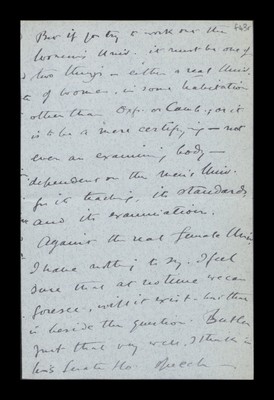 But if you try to work out the
Women's Univ. it must be one of
two things — either a real Univ.
of women, in some habitation
other than Oxf. or Camb., or it
is to be a mere certifying — not
even an examining body —
dependent on the men's Univ.
for its teaching, its standards
and its examination.
Against the real female Univ
I have nothing to say. I feel
sure that at no time we can
foresee, will it exist — but that
is beside the question. Butler
put that very well, I think in
his Senate Ho. speech —